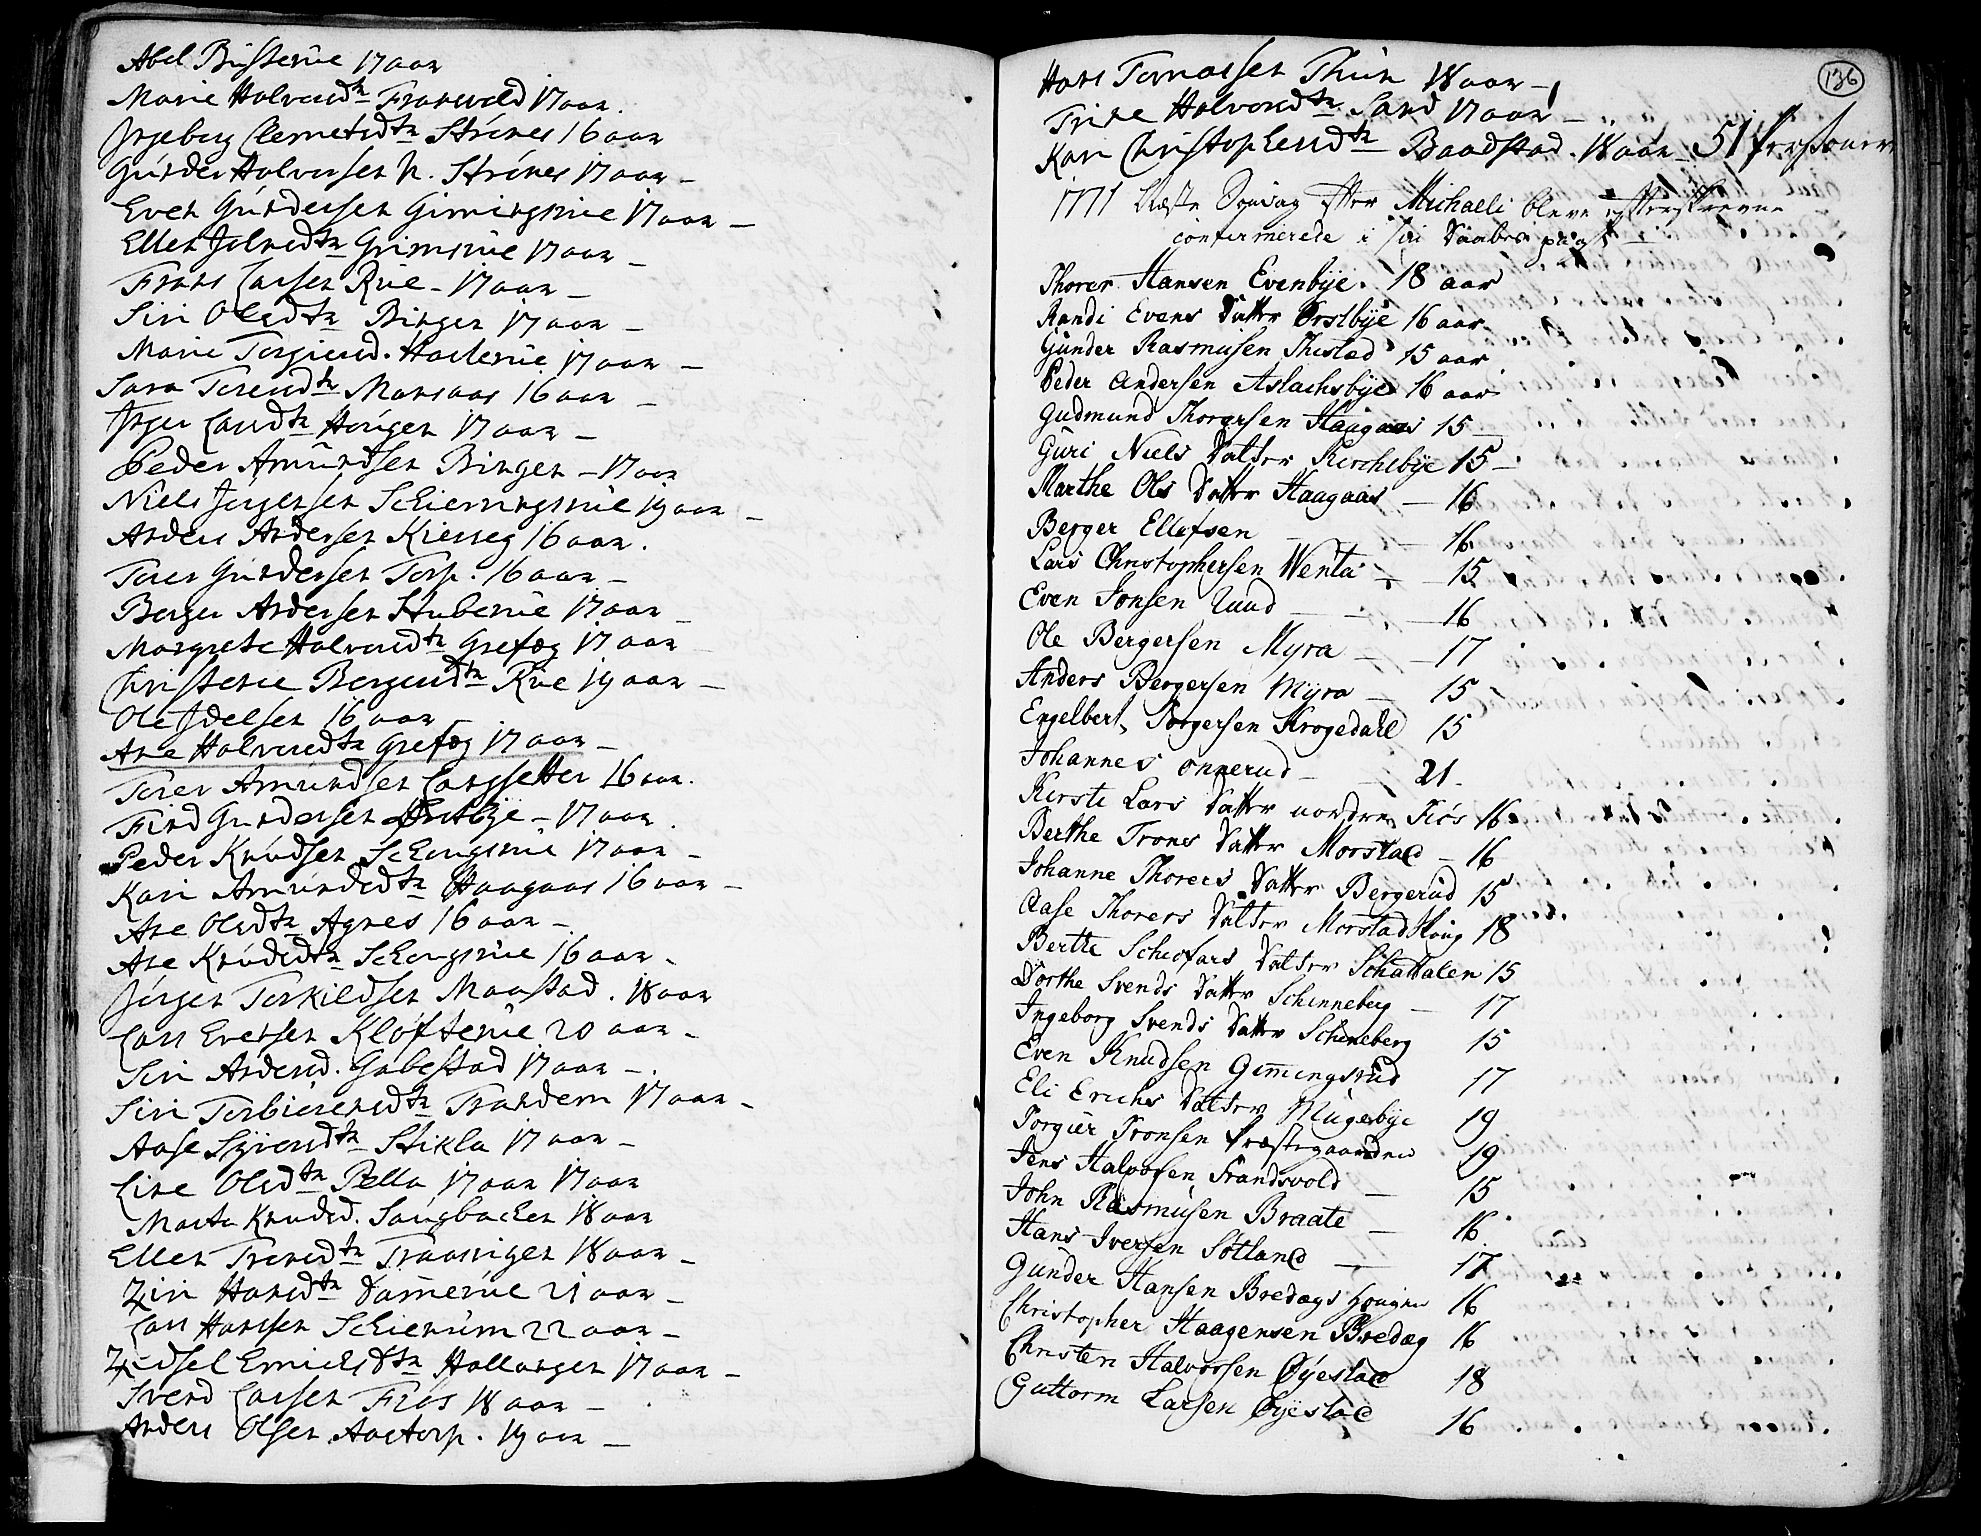 Abel Busterue 17 aar
Marie Halvorsdtr Fransvold 17 aar.
Ingeborg Clemetsdtr Strønes 16 aar
Gunder Halvorsen N. Strønes 17 aar –
Even Gundersen Gimingsrue 17 aar –
Ellen Jolredtr Grimsrue 17 aar –
Frans Larsen Rue – 17 aar –
Siri Olsdtr Bingen 17 aar –
Marie Torgiersd. Haslerue 17 aar –
Sara Toresdtr Morsaas 16 aar –
Inger Larsdtr Hougen 17 aar –
Peder Amundsen Bingen – 17 aar
Niels Jørgensen Schierningsrue 19 aar –
Anders Andersen Kisseg 16 aar.
Tores Gundersen Torp. 16 aar –
Berger Andersen Stuberue 17 aar –
Margrete Halvorsdtr Grefsøg 17 aar
Christense Bergersdtr Rue 19 aar –
Ole Joelsen 16 aar
Ane Halvorsdtr Grefsøg 17 aar –
Tores Amundsen Langsetter 16 aar.
Find Gundersen 17 aar.
Peder Knudsen Schougsrue 17 aar –
Kari Amundsdtr Haagaas 16 aar –
Ane Olsdtr Agnes 16 aar –
Ane Knudsdtr Schougsrue 16 aar –
Jørgen Torkildsen Moostad. 18 aar
Lars Evensen Kløfterue 20 aar –
Siri Andersd. Gubestad 17 aar –
Siri Torbiørensdtr Trondem 17 aar –
Aase Syversdtr Stikla 17 aar –
Line Olsdtr Pella 17 aar 17 aar
Marte Knudsd. Saugbachen 18 aar
Ellen Tronsdtr Traaningen 18 aar –
Ziri Hansdtr Dammerue 21 aar –
Lars Hansen Schierum 22 aar –
Zidsel Emichsdtr Hallangen 17 aar –
Svend Larsen Fiøs 18 aar –
Anders Olsen Aastorp. 19 aar –
136
Hans Tomassen Thun 18 aar –
Trine Halvorsdtr Sand 17 aar –
Kari Christophersdtr Baadstad. 18 aar – 51 Personer
1771 Næste Søndag efter Michaeli bleve efterskrevne
confermerede i
Thorer Hansen Evenbÿe. 18 aar
Randi Evens Datter Ørslbÿe 16 aar
Gunder Rasmusen Thistad 15 aar
Peder Andersen Aslachsbÿe 16 aar
Gudmund Thorersen Haugaas 15 –
Guri Niels Datter Kirchebÿe 15 –
Marthe Ols Datter Haagaas – 16
Berger Ellefsen – 16
Lars Christophersen Wenta – 15
Even Jonsen Ruud – 16
Ole Bergersen Myra – 17
Anders Bergersen Mÿra – 15
Engelbert Borgersen Krogedahl 15
Johannes onnerud – 21
Kirsti Lars Datter nordre Fiøs 16
Berthe Trons Datter Morstad – 16
Johanne Thorers Datter Bergerud 15
Aase Thorers Datter Morstad Houg 18
Berthe Schiofars Datter Schattalen 15
Dorthe Svends Datter Schinneberg – 17
Ingeborg Svends Datter Schinneberg 15
Even Knudsen Gimingsrud 17
Eli Erichs Datter Mugesbÿe 19
Torgier Tronsen Præstegaarden 19
Jens Halvorsen Frandsvold – 15
John Rasmusen Braate – 16
Hans Iversen Søtland – 17
Gunder Hansen Bredags Hougen 16
Christopher Haagensen Bredag 16
Christen Halvorsen Øÿestad 18
Guttorm Larsen Øÿestad 16